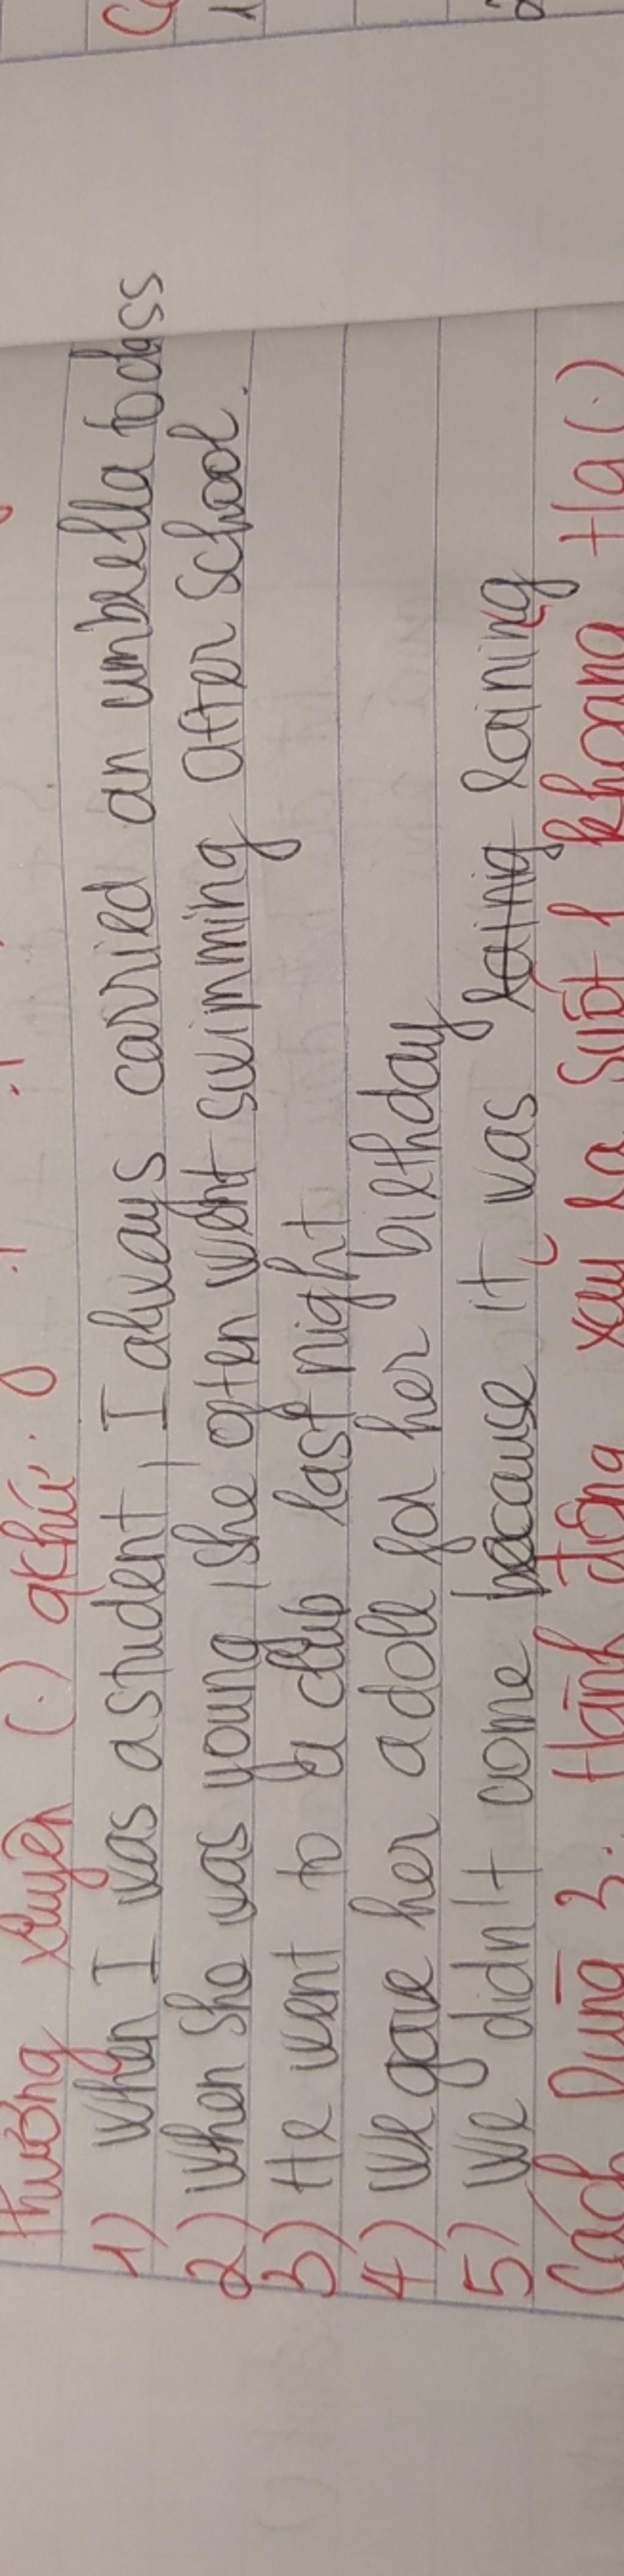 thường xuyên (.) qkhứ.
1) When I was a student, I always carried an umbrella to class
2) When she was young, she often went swimming after school.
3) He went to a club last night
4) We gave her a doll for her birthday
5) We didn't come because it was raining
Cách Dùng 3: Hành động xảy ra suốt 1 khoảng t/g (.)